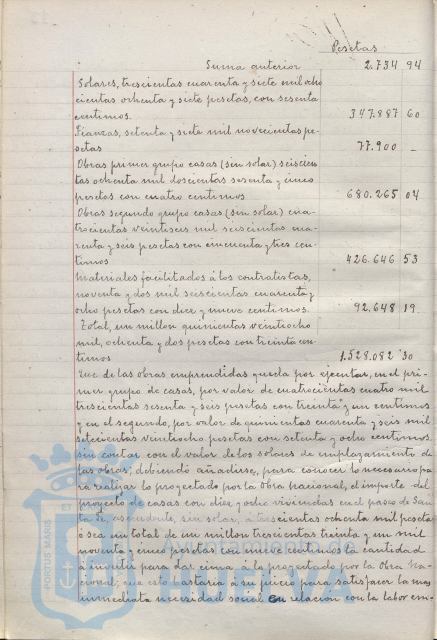 Pesetas
Suma anterior 2.734 94
Solares, trescientas cuarenta y siete mil ocho
cientas ochenta y siete pesetas, con sesenta
centimos. 347.887 60
Fianzas, setenta y siete mil novecientas pe-
setas 77.900 -
Obras primer grupo casas (sin solar) seiscien
tas ochenta mil doscientas sesenta y cinco
pesetas con cuatro centimos 680.265 04
Obras segundo grupo casas (sin solar) cua-
trocientas veintiseis mil seiscientas cua-
renta y seis pesetas con cincuenta y tres cen-
timos 426.646 53
Materiales facilitados á los contratistas,
noventa y dos mil seiscientas cuarenta y
ocho pesetas con diez y nueve centimos. 92.648 19
Total, un millon quinientas veintiocho
mil, ochenta y dos pesetas con treinta cen-
timos 1.528.082 30
Que de las obras emprendidas queda por ejecutar, en el pri-
mer grupo de casas, por valor de cuatrocientas cuatro mil
trescientas sesenta y seis pesetas con treinta y un centimos
y en el segundo, por valor de quinientas cuarenta y seis mil
setecientas veintiocho pesetas con setenta y ocho centimos.
sin contar con el valor de los solares de emplazamiento de
las obras; debiendo añadirse, para conocer lo necesario pa
ra realizar lo proyectado por la Obra nacional, el importe del
proyecto de casas con diez y ocho viviendas en el paseo de San
ta Fé, ascendente, sin solar, á trescientas ochenta mil pesetas
ó sea un total de un millon trescientas treinta y un mil
noventa y cinco pesetas con nueve centimos la cantidad
á invertir para dar cima á lo proyectado por la Obra Na
cional; que esto bastaria á su juicio para satisfacer la mas
inmediata necesidad social en relacion con la labor em-
PORTUS MARIS